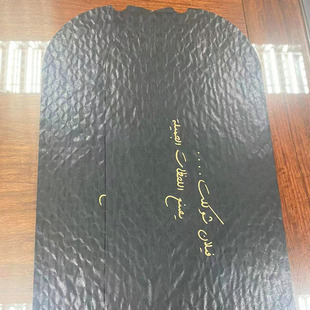 فيلان شوكلت ....
يصنع اللحظات الجميلة